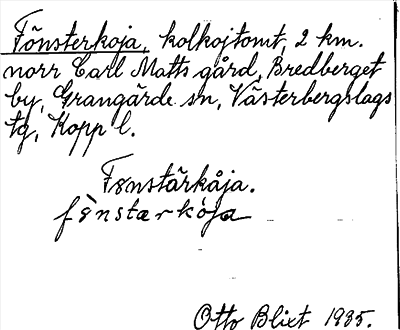 Fönsterkoja, kolkojtomt, 2 km.
norr Carl Matts gård, Bredberget
by, Grangärde sn, Västerbergslags
tg, Kopp l.
Fønstärkåja.
fønstærkòja
Otto Blixt 1935.